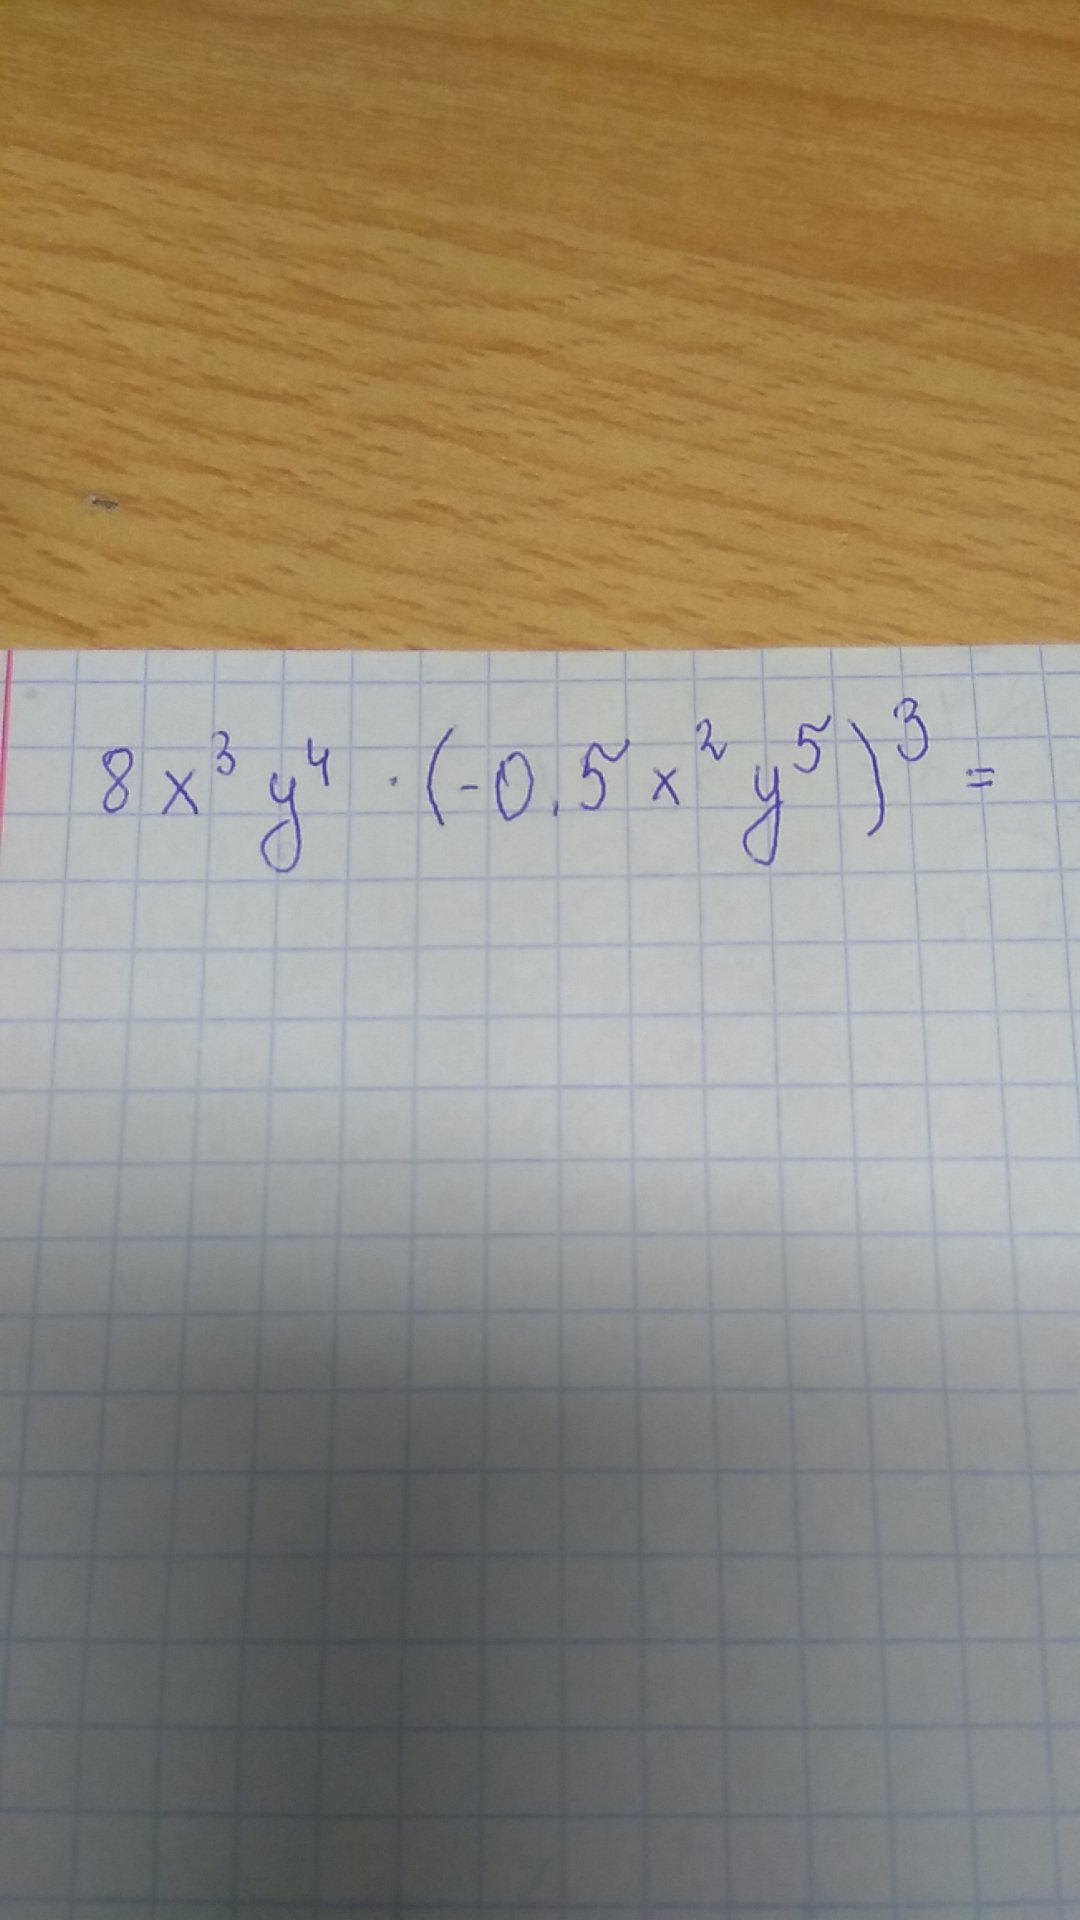 8x³y⁴ · (-0.5x²y⁵)³ =